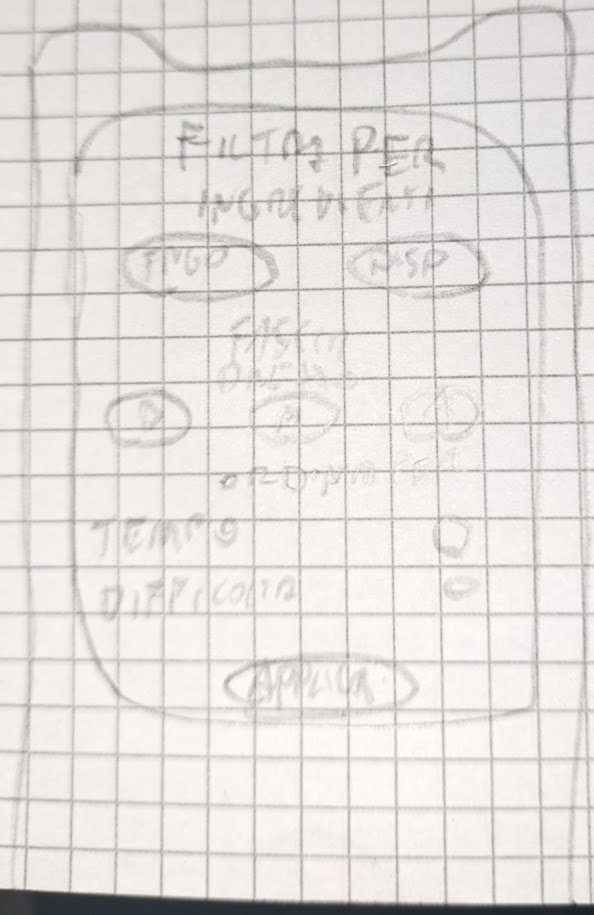 FILTRA PER
INGREDIENTI
FASCIA
B A
ORDINA PER
TEMPO
DIFFICOLTA
APPLICA